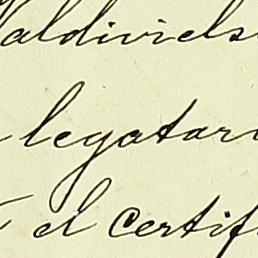 Valdiviels
legatari
el certif